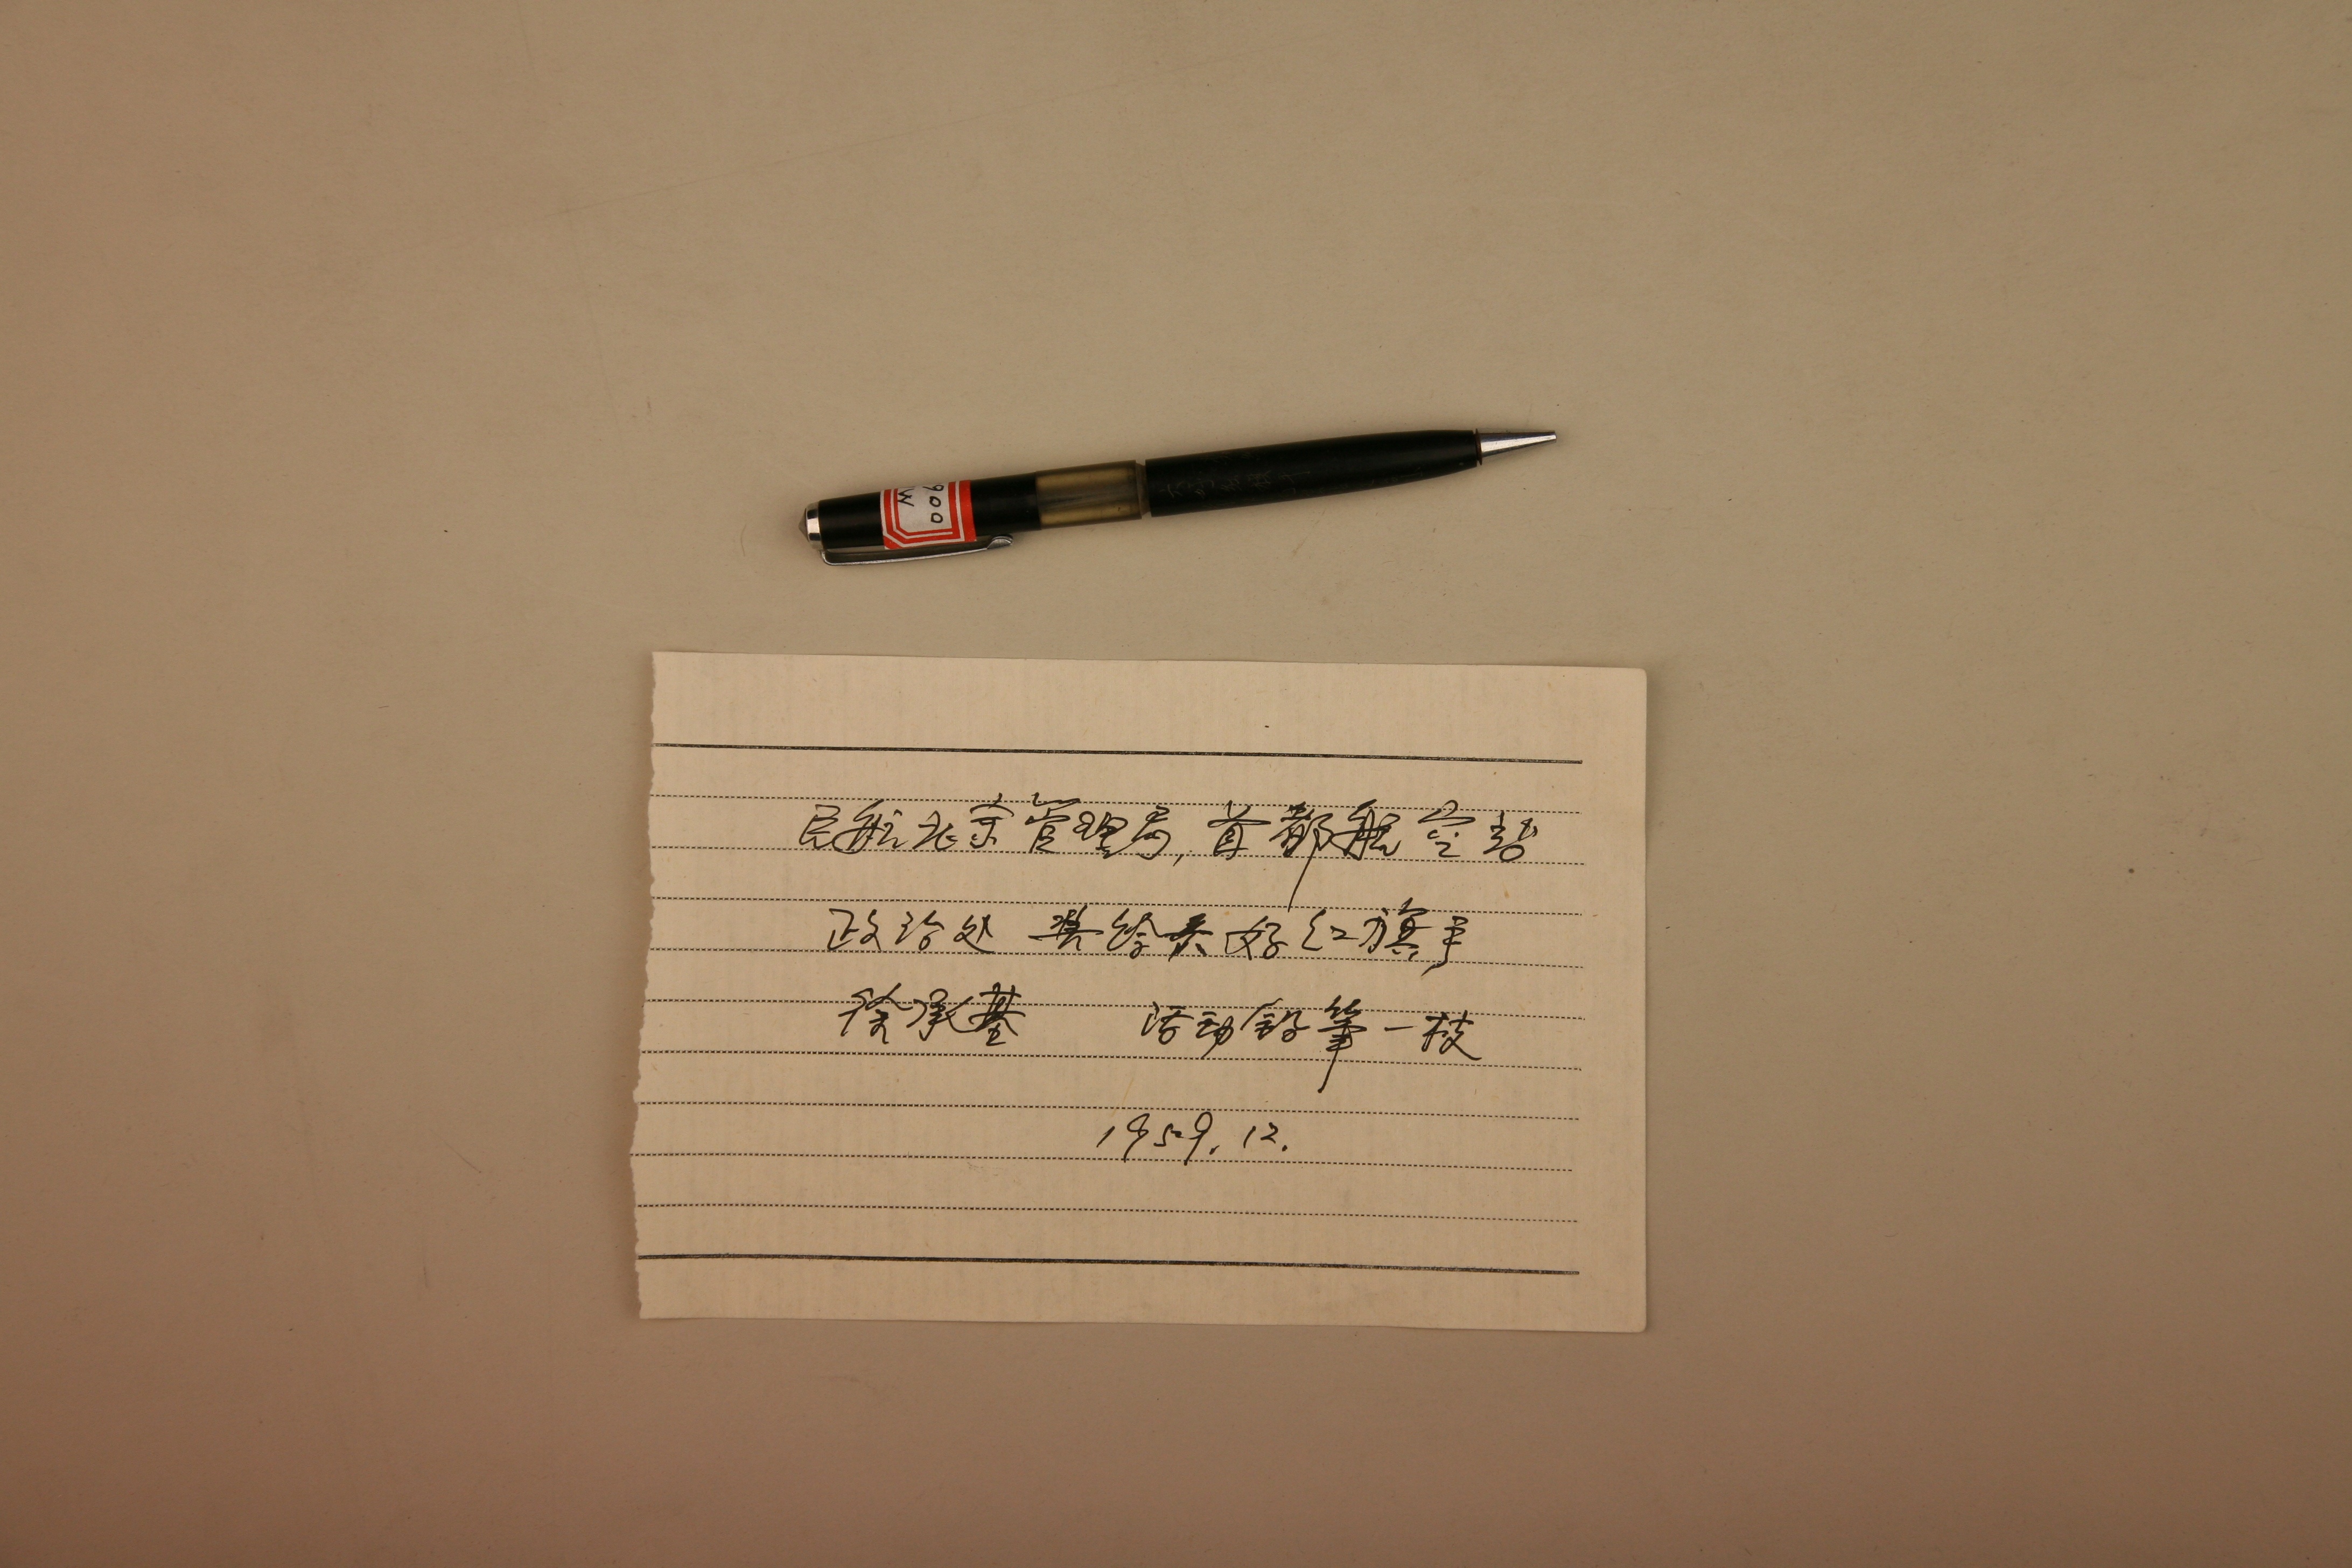 009
民航北京管理局,首都航空站
政治处 奖给六好红旗手
徐承基 活动铅笔一枝
1959.12.